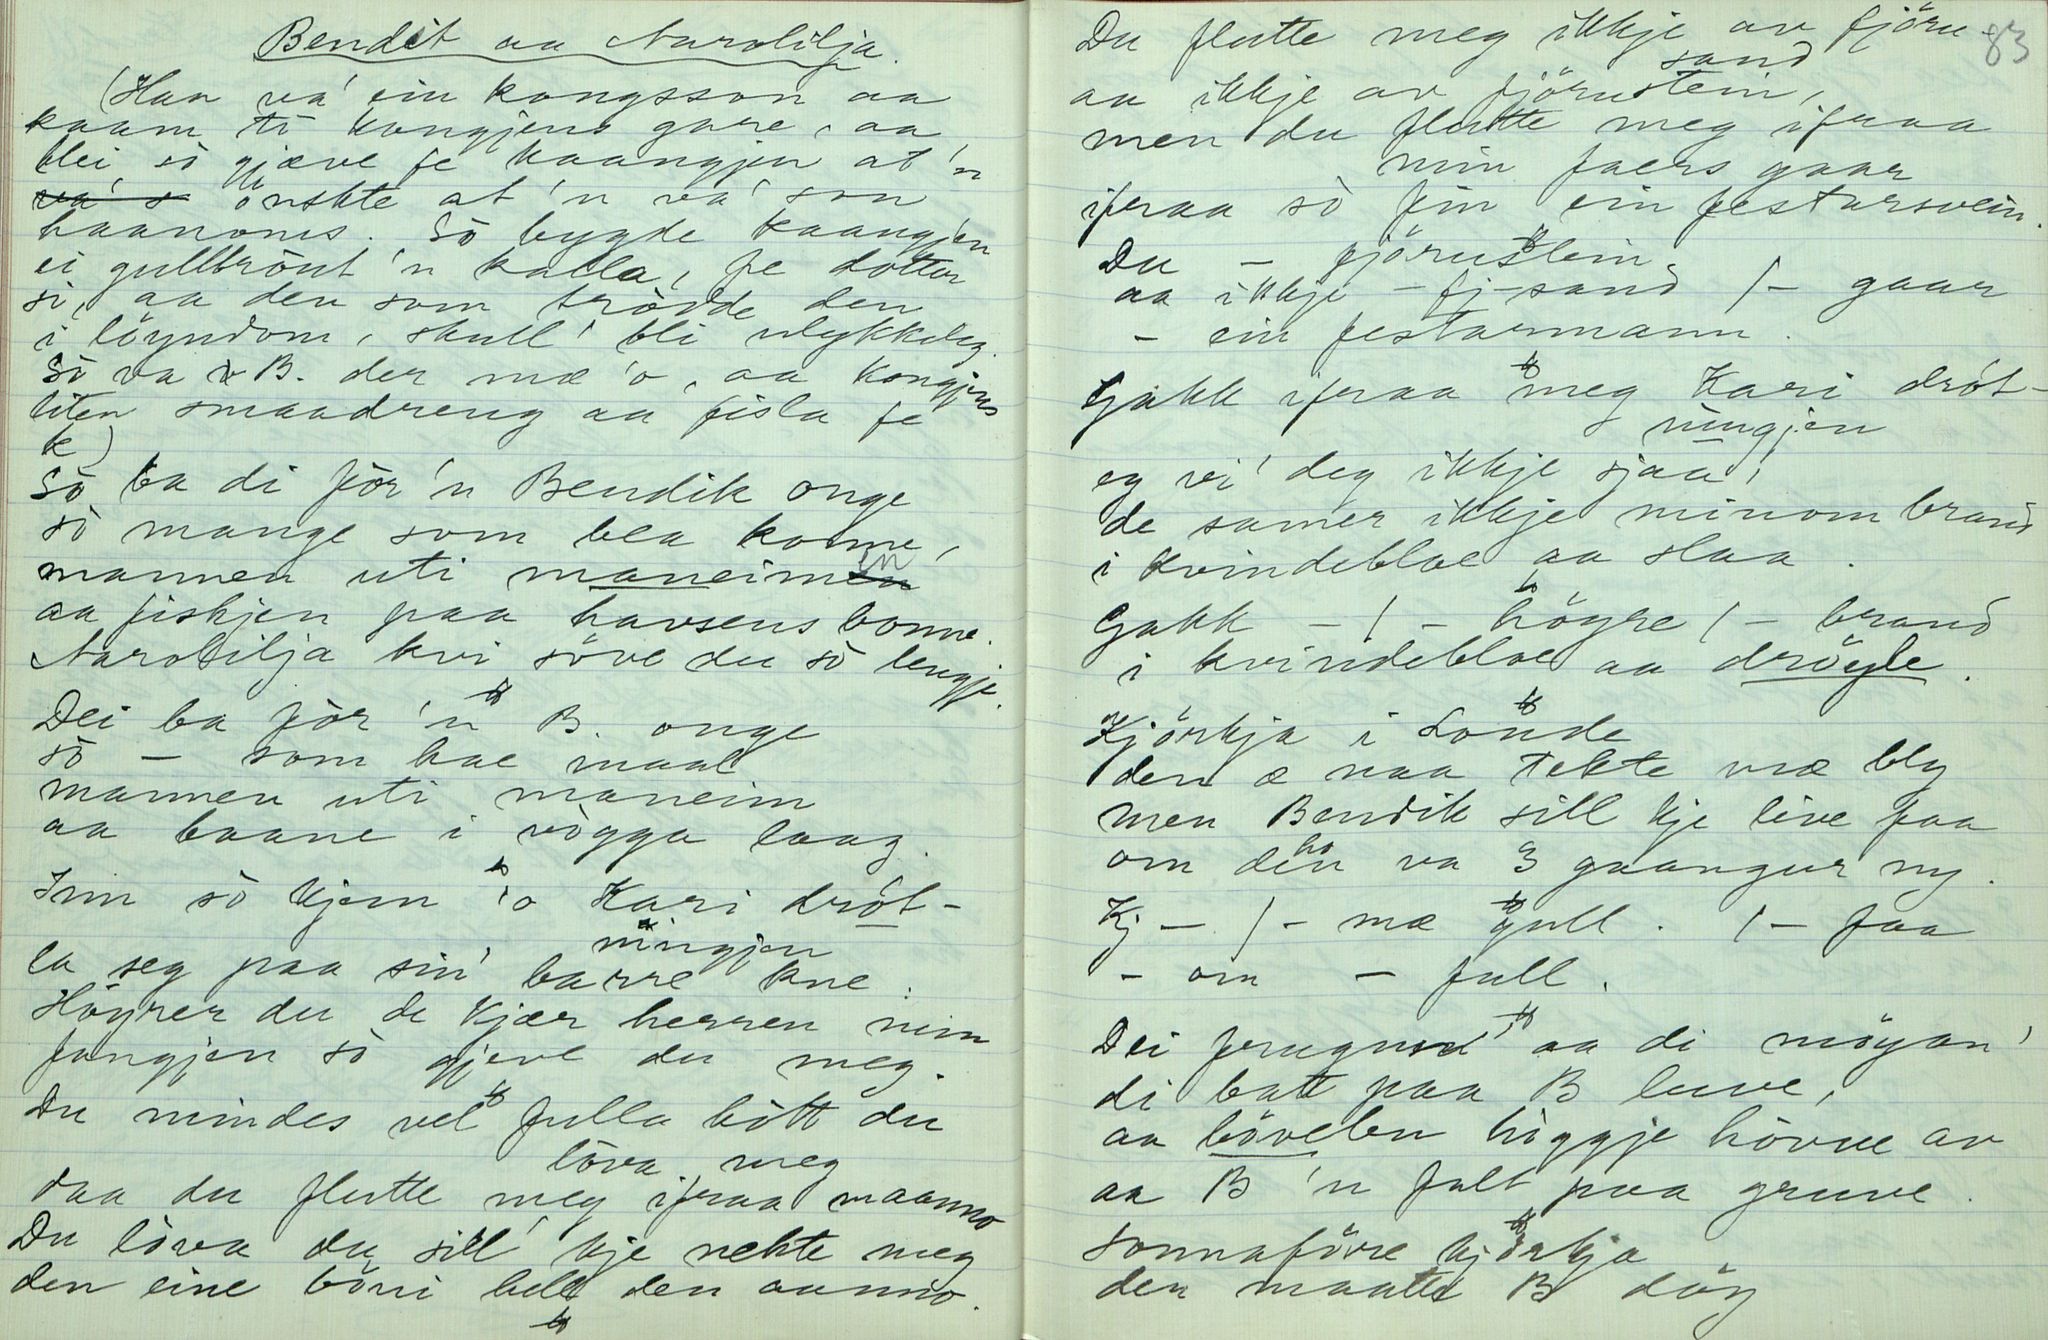 Bendit aa Aarolilja.
(Han va' ein kongsson aa
kaam ti kongjens gare, aa
blei so gjæve fe kaangjen at 'n
va' s önskte at 'n va' son
haanoms. So bygde kaangjen
ei gullbrönt 'n kalla, fe dotter
si, aa den som trödde den
i löyndom, skull' bli ulykkeleg.
Sò va B. der mæ 'o, aa kongjens
liten smaadreng aa fisla fe
k)
Sò ba di fòr 'n Bendik onge
sò mange som bea konne,
mannen uti maneimen in
aa fiskjen paa havsens bonne.
Aarolilja kvi söve du sò lengje.
Dei ba fòr 'n B. onge
sò — som hae maal
mannen uti maneim
aa baane i vògga laag.
Inn sò kjem 'o Kari dròt-
ningjen
la seg paa sin' barre kne.
Höyrer du de kjær herren min
fangjen sò gjeve du meg.
Du mindes vel fulla hòtt du
lòva meg
daa du flutte meg ifraa maanno
Du lòva du sill' kje nekte meg
den eine böni hell den aanno.
83
Du flutte meg ikkje av fjöru-
sand
aa ikkje av fjörustein,
men du flutte meg ifraa
min faers gaar
ifraa sò fin ein festarsvein.
Du — fjörustein
aa ikkje - fj-sand /- gaar
- ein festarmann.
Gakk ifraa meg Kari dròt-
ningjen
eg vi' deg ikkje sjaa,
de samer ikkje minom brand
i kvindebloe aa slaa.
Gakk - / - högre / - brand
i kvindebloe aa dröyle.
Kjörkja i Sönde
den æ naa tekte mæ bly
men Bendik sill kje live faa
om den ho va 3 gaangur ny.
Kj - / - mæ gull. / - faa
- om - full.
Dei frugund' aa di möyan'
di batt paa B luve,
aa bövelen higgje hövue av
aa B 'n falt paa gruve.
Sonnaföre kjörkja
den maatte B döy